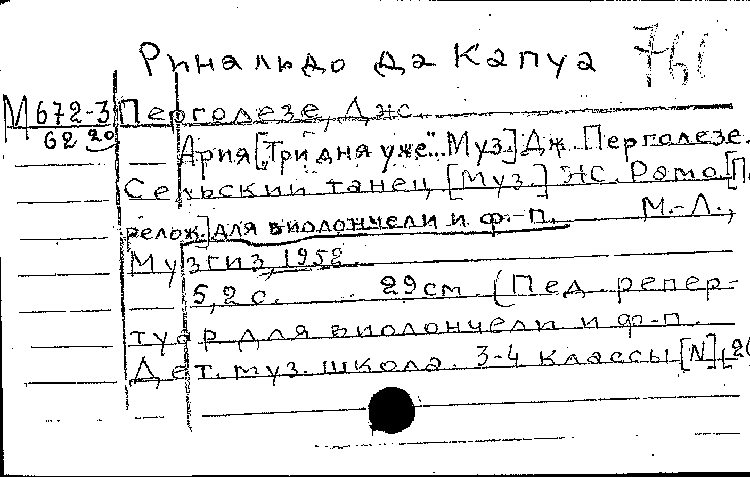 Ринальдо да Капуа 761
М672-3 Перголезе, Дж.
62 20
Ария [„Три дня уже"... Муз.] Дж. Перголезе.
Сельский танец [Муз.] Ж. Рамо [П
релож.] для виолончели и ф.-п. М.-Л.,
Музгиз, 1952.
5, 2 с. 29 см (Пед. репер-
туар для виолончели и ф-п.
Дет. муз. школа. 3-4 классы [N]